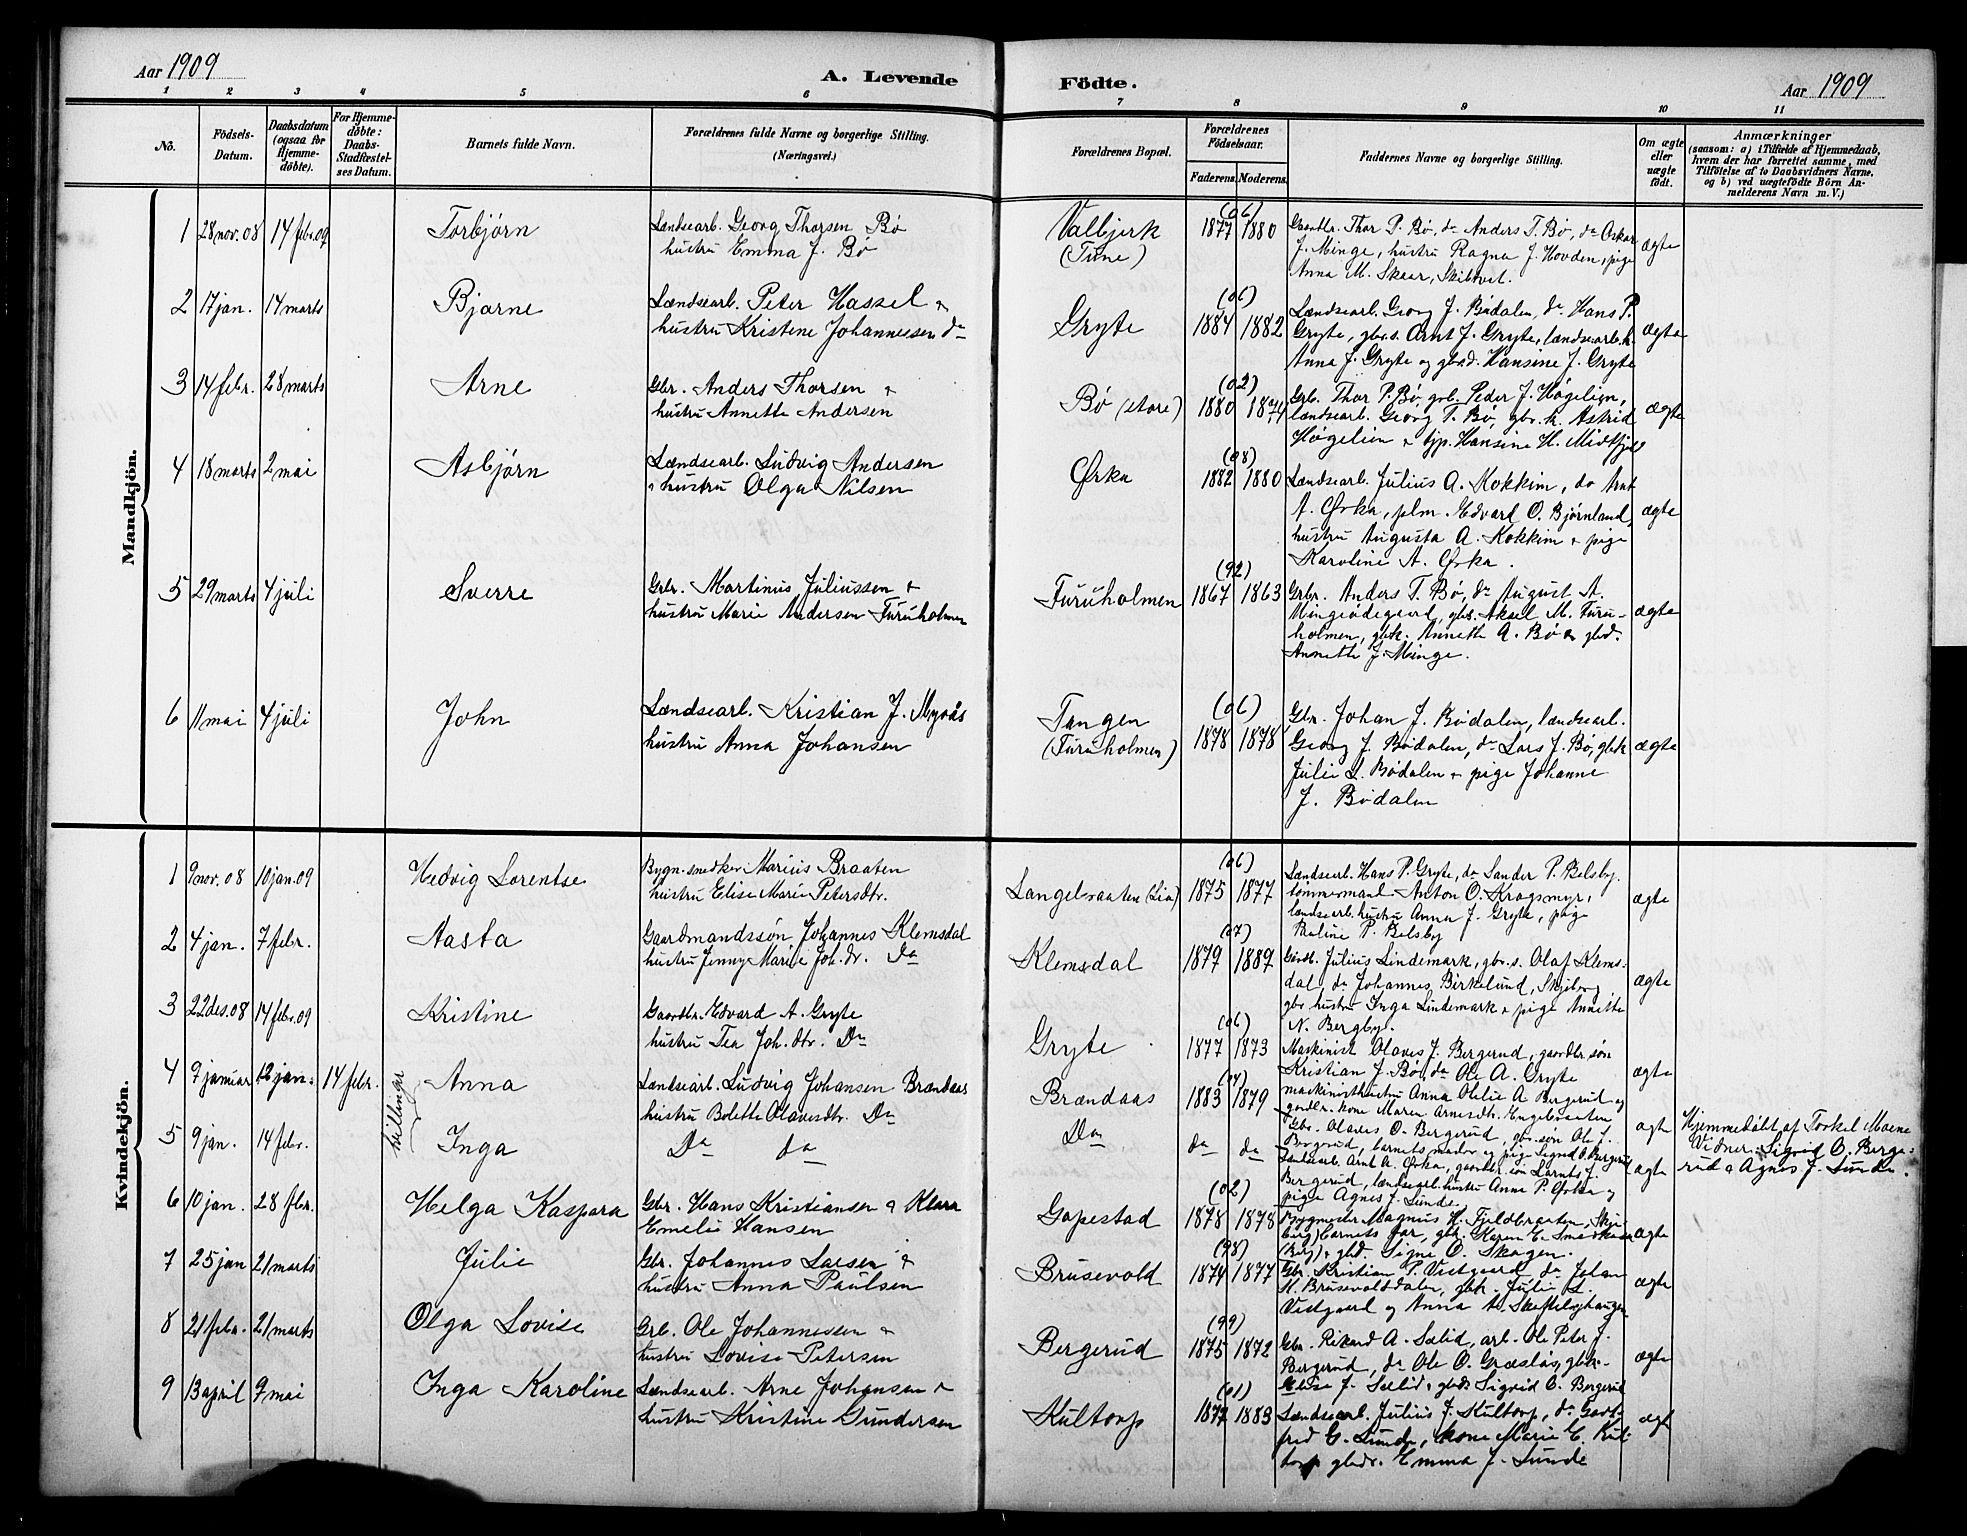 Aar 1909
A. Levende
Födte.
Aar 1909
1 2 3 4 5 6 7 8 9 10 11
No.
Födsels-Datum.
Daabsdatum (ogsaa for Hjemme-döbte).
For Hjemme-döbte: Daabs-Stadfæstel-ses Datum.
Barnets fulde Navn.
Forældrenes fulde Navne og borgerlige Stilling.
(Næringsvei.)
Forældrenes Bopæl.
Forældrenes Födselsaar.
Faderens. Moderens.
Faddernes Navne og borgerlige Stilling.
Om ægte eller uægte födt.
Anmærkninger
(saasom: a) i Tilfælde af Hjemmedaab,
hvem der har forrettet samme, med
Tilföielse af to Daabsvidners Navne,
og b) ved uægtefödte Börn An-
melderens Navn m. V.)
Mandkjön.
1 28 nov. 08 14 febr. 09 Torbjørn Landsearb. Georg Thorsen Bø
hustru Emma J. Bø
Valbjerk
(Tune)
(06)
1877 1880
Gaardbr. Thor P. Bø, do Anders T. Bø, do Oskar
J. Minge, hustru Ragna J. Hovden, pige
Anna M. Skaar, Skibtvet.
ægte
2 17 jan. 14 marts Bjarne Lændsearb. Peter Hassel &
hustru Kristene Johannessen do
Gryte
(06)
1884 1882
Lændsearb. Georg J. Bødalen, do Hans P.
Gryte, gbr.s. Arnt J. Gryte, lændsearb. h.
Anna J. Gryte og gbsd. Hansine J. Gryte
ægte
3 14 febr. 28 marts Arne Gbr. Anders Thorsen &
hustru Annette Andersen
Bø (store)
(02)
1880 1874
Grb. Thor P. Bø, grb. Peder J. Høgelien,
lændsearb. Georg T. Bø, gbr. h. Astrid
Høgelien & tjp. Hansine H. Midtfjeld
ægte
4 18 marts 2 mai Asbjørn Lændsearb. Ludvig Andersen
& hustru Olga Nilsen
Ørka
(08)
1882 1880
Lændsearb. Julius A. Kokkim, do Arnt
A. Ørka, plm. Edvard O. Bjørnland,
hustru Augusta A. Kokkim & pige
Karoline A. Ørka.
ægte
5 29 marts 4 juli Sverre Grbr. Martinus Juliussen &
hustru Marie Andersen Furuholmen
Furuholmen
(92)
1867 1863
Grbr. Anders T. Bø, do August A.
Mingeødegaard, gbs. Aksel M. Furu-
holmen, gbk. Annette A. Bø & gbd.
Annette J. Minge.
ægte
6 11 mai 4 juli John Lændsearb. Kristian J. Myraas
hustru Anna Johansen
Tangen
(Furuholmen)
(06)
1878 1878
Gbr. Johan J. Bødalen, lændsearb.
Georg J. Bødalen, do Lars J. Bø, gbk
Julie L. Bødalen & pige Johanne
J. Bødalen
ægte
Kvindekjön.
1 9 nov. 08 10 jan. 09 Hedvig Lorentse Bygn. snedker Marius Braaten
hustru Elise Marie Petersdtr.
Langebraaten (Lia)
(06)
1875 1877
Lændsearb. Hans P. Gryte, do Sander P. Belsby,
tømmermand Anton O. Kragsmyr,
lændsearb. hustru Anna J. Gryte, pige
Beline P. Belsby
ægte
2 4 jan. 7 febr. Aasta Gaardmandssøn Johannes Klemsdal
hustru Jenny Marie Joh. dr. Do
Klemsdal
(07)
1879 1889
Gårdb. Julius Lindemark, gbr.s. Olaf Klems-
dal, do Johannes Birkelund, Skjeberg
gbr. hustru Inga Lindemark & pige Annette
N. Bergby.
ægte
3 22 des. 08 14 febr. 09 Kristine Gaardbr. Edvard A. Gryte
hustru Tea Joh. dtr. Do
Gryte
(06)
1877 1873
Maskinist Olaves J. Bergerud, gaardbr. søn
Kristian J. Bø, do Ole A. Gryte
maskinisthustru Anna Olelie A. Bergerud og
gaardbr. kone Maren Arnesdtr. Engebraaten
ægte
tvillinger
4 9 januar 12 jan. 14 febr. Anna Lændsearb. Ludvig Johansen Brændaas
hustru Bolette Olavesdtr. Do
Brændaas
(04)
1883 1879
Gbr. Olaves O. Bergerud, gbr. søn Ole J.
Bergerud, barnets moder og pige Sigrid O. Bergerud
ægte
Hjemmedøbt af Torkel Moene
Vidner: Sigrid O. Berge-
rud & Agnes J. Sunde.
5 9 jan. 14 febr. Inga Do do
Do
do do
Lændsearb. Arnt A. Ørka, gaardbr. søn Larnts J.
Bergerud, lændsearb. hustru Anne P. Ørka og
pige Agnes J. Sunde.
ægte
6 10 jan. 28 febr. Helga Kaspara Gbr. Hans Kristiansen & Klara
Emelie Hansen
Gapestad
(02)
1878 1878
Bygmester Magnus H. Fjeldbraaten, Skje-
berg, barnets far, gbk. Karen E.
(Berg) & gbd. Signe O. Skogen.
ægte
7 25 jan 21 marts Julie Gbr. Johannes Larsen &
hustru Anna Paulsen
Brusevold
(98)
1874 1877
Gbr. Kristian P. Vestgaard, do Johan
K. Brusevolddalen, gbk. Julie L.
Vestgaard og Anna A. Skoftebyhaugen
ægte
8 21 febr. 21 marts Olga Lovise Grb. Ole Johannessen &
hustru Lovise Petersen
Bergerud
(99)
1875 1872
Gbr. Rikard A. Sælid, arb. Ole Peter J.
Bergerud, do Ole O. Græsløs, gbk.
Elise J. Sælid & gbds Sigrid O. Bergerud
ægte
9 13 april 9 mai Inga Karoline Lændsearb. Arne Johansen &
hustru Kristine Gundersen
Kultorp
(01)
1877 1883
Lændsearb. Julius J. Kultorp, do Godt-
fred C. Sunde, kone Marie E. Kul-
torp gbdr. Emma J. Sunde
ægt